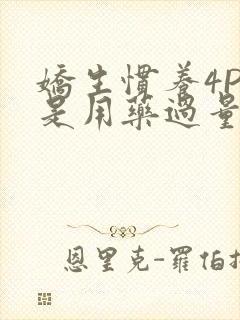 嬌生慣養4P
是用藥過量
恩里克-羅伯托